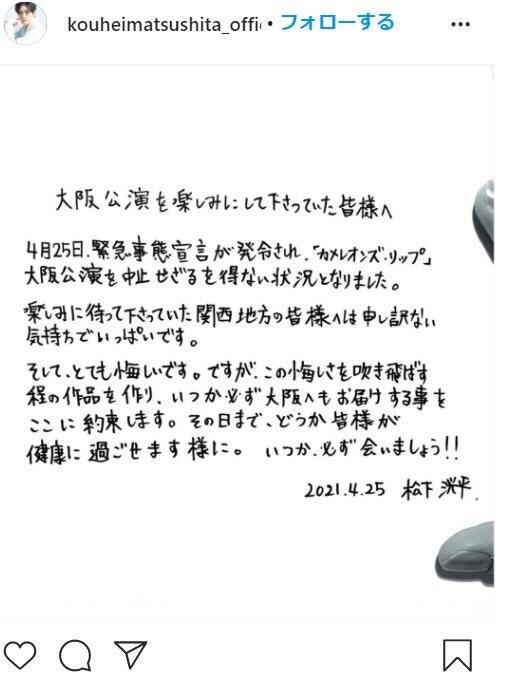 kouheimatsushita_offic • フォローする
大阪公演を楽しみにして下さっていた皆様へ
4月25日、緊急事態宣言が発令され、「カメレオンズ・リップ」
大阪公演を中止せざるを得ない状況となりました。
楽しみに待って下さっていた関西地方の皆様へは申し訳ない
気持ちでいっぱいです。
そして、とても悔しいです。ですが、この悔しさを吹き飛ばす
程の作品を作り、いつか必ず大阪へもお届けする事を
ここに約束します。その日まで、どうか皆様が
健康に過ごせます様に。 いつか、必ず会いましょう!!
2021.4.25 松下洸平.